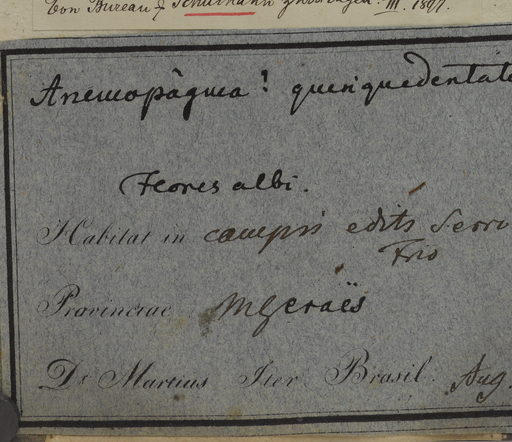 Bureau & Schumann III. 1897.
Anemopàgma? quinquedentata
Flores albi.
Habitat in campis editis Serro
Frio
Provinciae MGeraës
Dr Martius Iter Brasil. Aug.